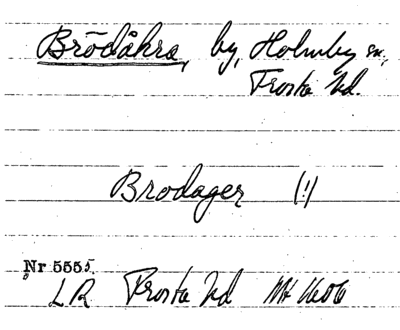 Brödåkra, by, Holmby sn,
Frosta hd.
Brodager (!)
Nr 5555
LR Frosta hd Mt 1606